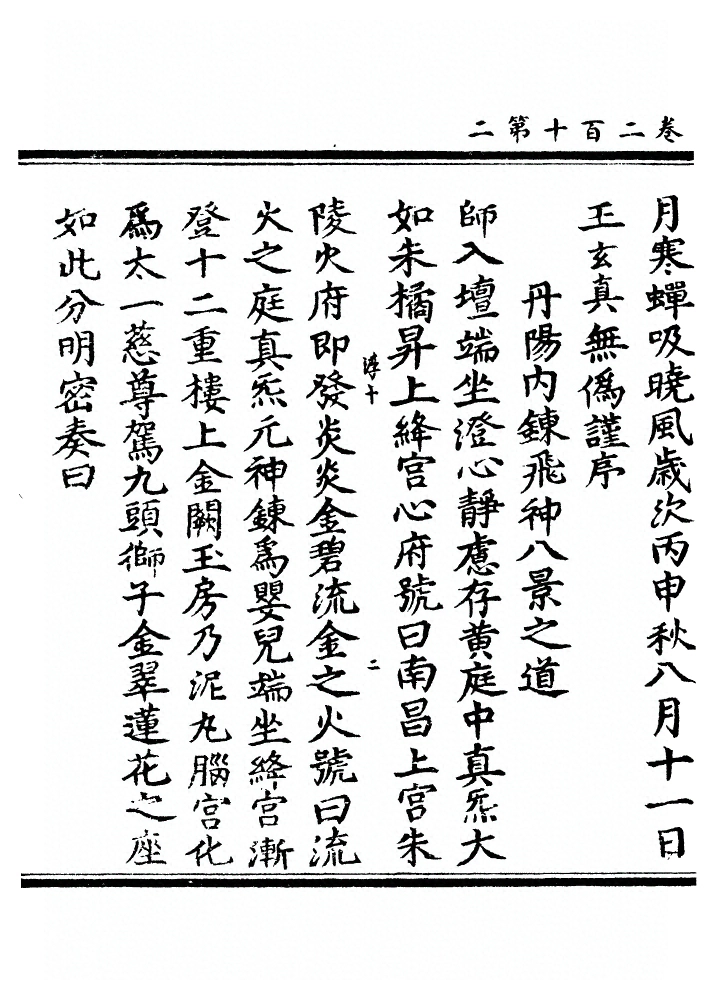 卷二百十第二
月寒蟬吸曉風歲次丙申秋八月十一日
王玄真無僞謹序
丹陽内鍊飛神八景之道
師入壇端坐澄心靜慮存黄庭中真炁大
如朱橘昇上絳宮心府號曰南昌上宮朱
淳十 二
陵火府即發炎炎金碧流金之火號曰流
火之庭真炁元神鍊爲嬰兒端坐絳宮漸
登十二重樓上金闕玉房乃泥丸腦宮化
爲太一慈尊駕九頭獅子金翠蓮花之座
如此分明密奏曰